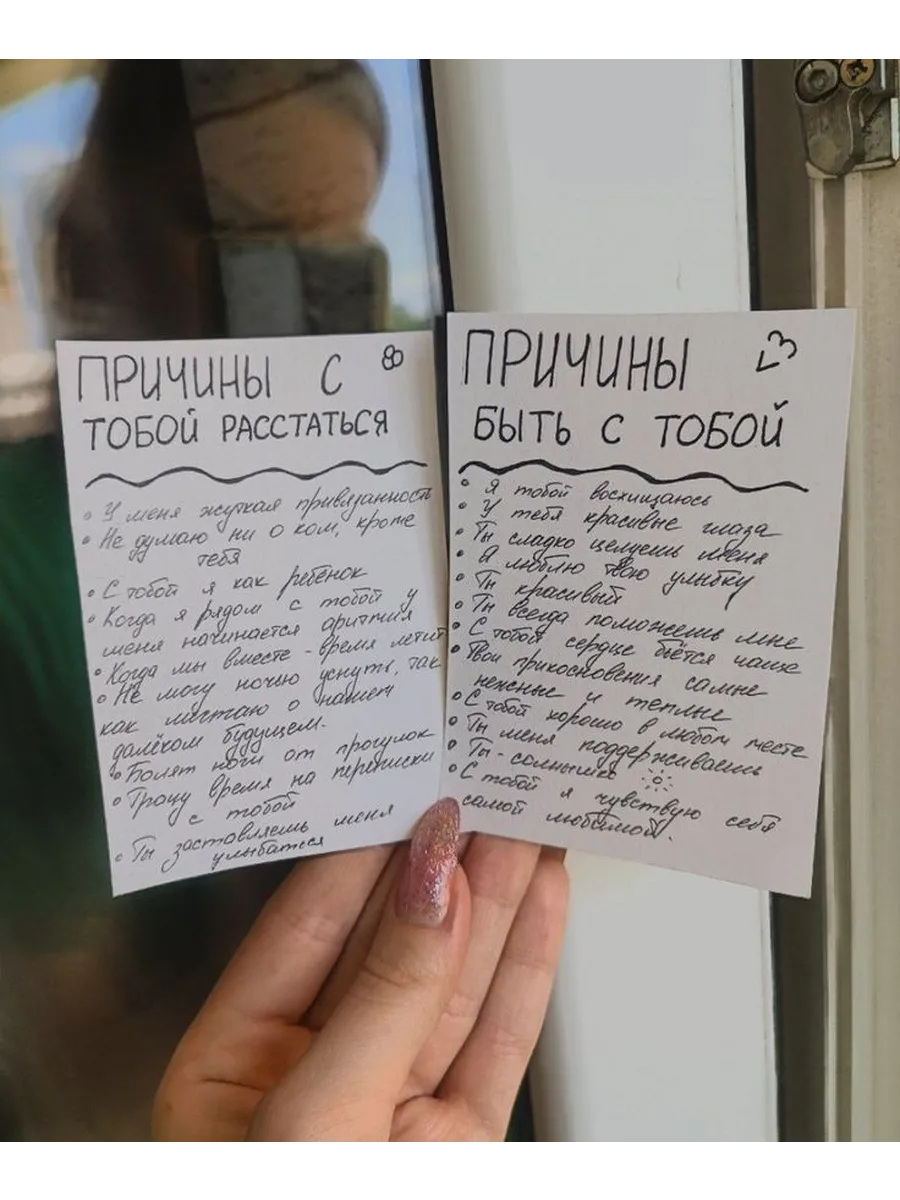 ПРИЧИНЫ С
ТОБОЙ РАССТАТЬСЯ
• У меня жуткая привязанность
• Не думаю ни о ком, кроме
тебя
• С тобой я как ребёнок
• Когда я рядом с тобой у
меня начинается аритмия
• Когда мы вместе - время летит
• Не могу ночью уснуть, так
как мечтаю о нашем
далёком будущем.
• Болят ноги от прогулок
• Трачу время на переписки
с тобой
• Ты заставляешь меня
улыбаться
ПРИЧИНЫ <3
БЫТЬ С ТОБОЙ
• Я тобой восхищаюсь
• У тебя красивые глаза
• Ты сладко целуешь меня
• Я люблю твою улыбку
• Ты красивый
• Ты всегда поможешь мне
• С тобой сердце бьётся чаще
• Твои прикосновения самые
нежные и теплые
• С тобой хорошо в любом месте
• Ты меня поддерживаешь
• Ты - солнышко
• С тобой я чувствую себя
самой любимой.